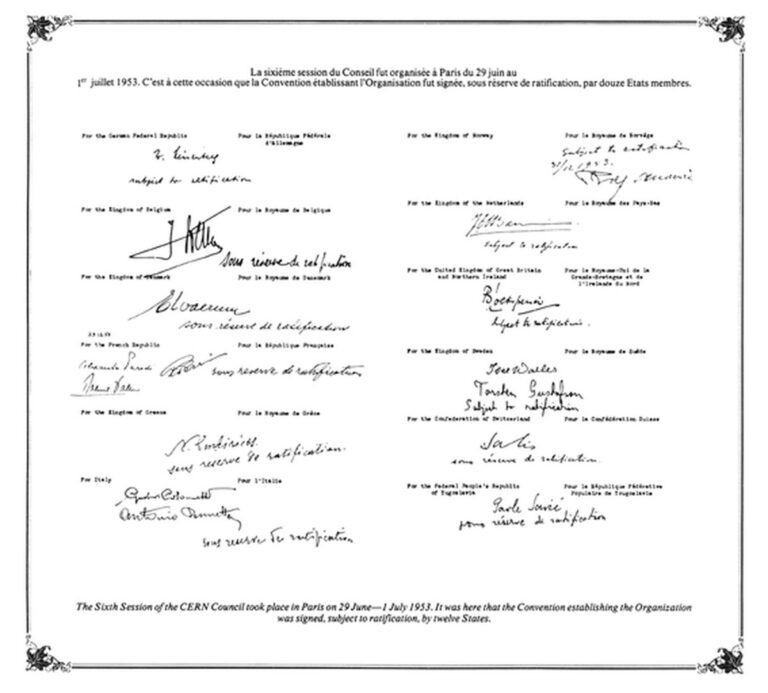 La sixième session du Conseil fut organisée à Paris du 29 juin au
1er juillet 1953. C'est à cette occasion que la Convention établissant l'Organisation fut signée, sous réserve de ratification, par douze Etats membres.
For the German Federal Republic
Pour la République Fédérale
d'Allemagne
subject to ratification
For the Kingdom of Belgium
Pour le Royaume de Belgique
sous réserve de ratification
For the Kingdom of Denmark
Pour le Royaume de Danemark
sous réserve de ratification
For the French Republic
Pour la République Française
sous reserve de ratification
For the Kingdom of Greece
Pour le Royaume de Grèce
sous reserve de ratification.
For Italy
Pour l'Italie
Gustavo Colonnetti
Antonio
sous reserve de ratification
For the Kingdom of Norway
Pour le Royaume de Norvège
Subject to ratification
31/12 1953.
For the Kingdom of the Netherlands
Pour le Royaume des Pays-Bas
subject to ratification
For the United Kingdom of Great Britain
and Northern Ireland
Pour le Royaume-Uni de la
Grande-Bretagne et de
l'Irelande du Nord
subject to ratification.
For the Kingdom of Sweden
Pour le Royaume de Suède
Torsten Gustafson
Subject to ratification
For the Confederation of Switzerland
Pour la Confédération Suisse
Salis
sous réserve de ratification.
For the Federal People's Republic
of Yugoslavia
Pour la République Fédérative
Populaire de Yougoslavie
Pavle Savić
sous réserve de ratification
The Sixth Session of the CERN Council took place in Paris on 29 June—1 July 1953. It was here that the Convention establishing the Organization
was signed, subject to ratification, by twelve States.